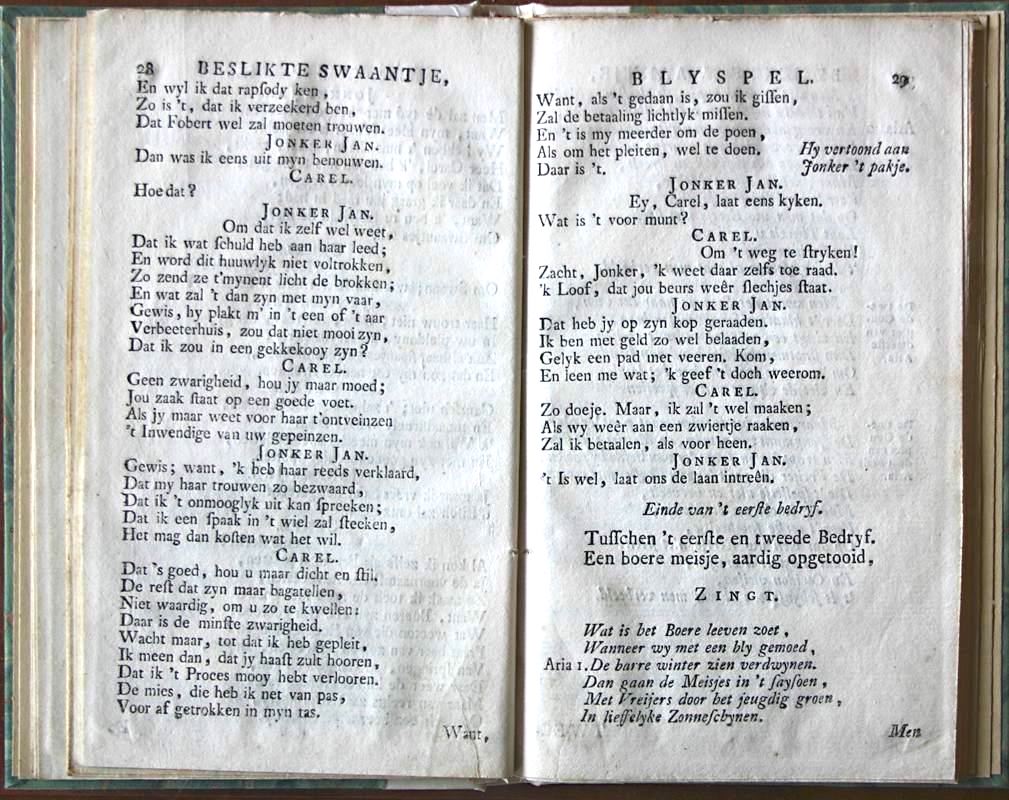 28 BESLIKTE SWAANTJE,
En wyl ik dat rapſody ken,
Zo is 't, dat ik verzeekerd ben,
Dat Fobert wel zal moeten trouwen.
JONKER JAN.
Dan was ik eens uit myn benouwen.
CAREL.
Hoe dat?
JONKER JAN.
Om dat ik zelf wel weet,
Dat ik wat ſchuld heb aan haar leed;
En word dit huuwlyk niet voltrokken,
Zo zend ze t'mynent licht de brokken;
En wat zal 't dan zyn met myn vaar,
Gewis, hy plakt m' in 't een of 't aar
Verbeeterhuis, zou dat niet mooi zyn,
Dat ik zou in een gekkekooy zyn?
CAREL.
Geen zwarigheid, hou jy maar moed;
Jou zaak ſtaat op een goede voet.
Als jy maar weet voor haar t'ontveinzen
't Inwendige van uw gepeinzen.
JONKER JAN.
Gewis; want, 'k heb haar reeds verklaard,
Dat my haar trouwen zo bezwaard,
Dat ik 't onmooglyk uit kan ſpreeken;
Dat ik een ſpaak in 't wiel zal ſteeken,
Het mag dan koſten wat het wil.
CAREL.
Dat 's goed, hou u maar dicht en ſtil.
De reſt dat zyn maar bagatellen,
Niet waardig, om u zo te kwellen:
Daar is de minſte zwarigheid.
Wacht maar, tot dat ik heb gepleit,
Ik meen dan, dat jy haaſt zult hooren,
Dat ik 't Proces mooy hebt verlooren.
De mies, die heb ik net van pas,
Voor af getrokken in myn tas.
Want,
BLYSPEL. 29
Want, als 't gedaan is, zou ik giſſen,
Zal de betaaling lichtlyk miſſen.
En 't is my meerder om de poen,
Als om het pleiten, wel te doen. Hy vertoond aan
Daar is 't. Jonker 't pakje.
JONKER JAN.
Ey, Carel, laat eens kyken.
Wat is 't voor munt?
CAREL.
Om 't weg te ſtryken!
Zacht, Jonker, 'k weet daar zelfs toe raad.
'k Loof, dat jou beurs weêr ſlechjes ſtaat.
JONKER JAN.
Dat heb jy op zyn kop geraaden.
Ik ben met geld zo wel belaaden,
Gelyk een pad met veeren. Kom,
En leen me wat; 'k geef 't doch weerom.
CAREL.
Zo doeje. Maar, ik zal 't wel maaken;
Als wy weêr aan een zwiertje raaken,
Zal ik betaalen, als voor heen.
JONKER JAN.
't Is wel, laat ons de laan intreên.
Einde van 't eerſte bedryf.
Tuſſchen 't eerſte en tweede Bedryf.
Een boere meisje, aardig opgetooid,
ZINGT.
Wat is het Boere leeven zoet,
Wanneer wy met een bly gemoed,
Aria 1. De barre winter zien verdwynen.
Dan gaan de Meisjes in 't ſayſoen,
Met Vreijers door het jeugdig groen,
In lieffelyke Zonneſchynen.
Men